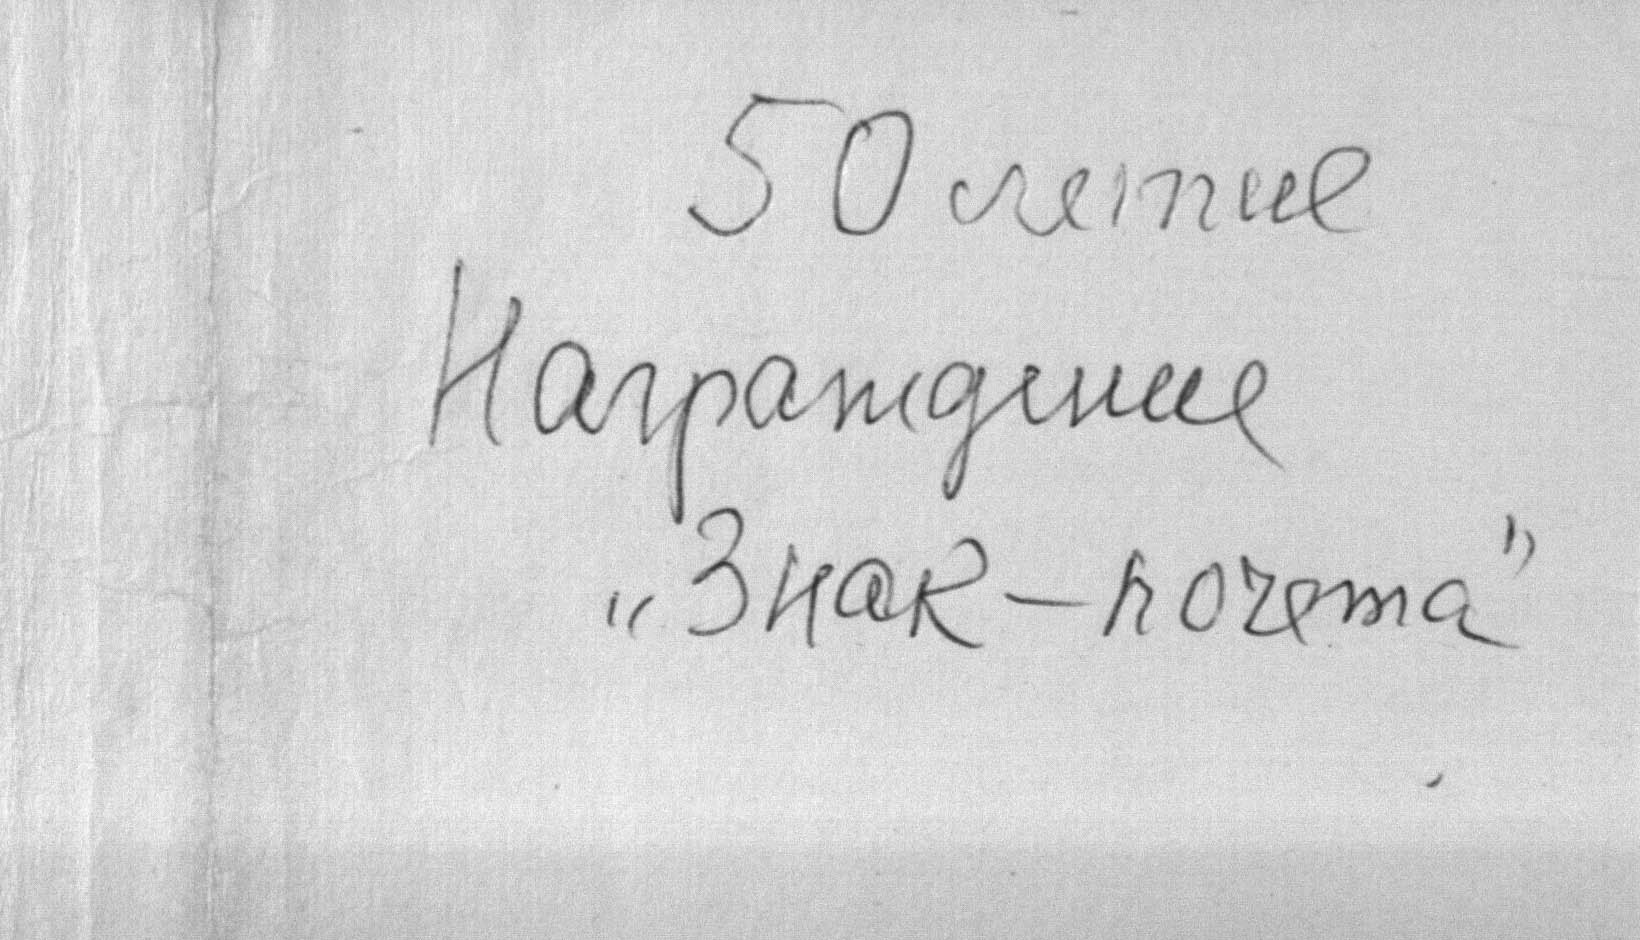 50 летие
Награждение
„Знак – почета”